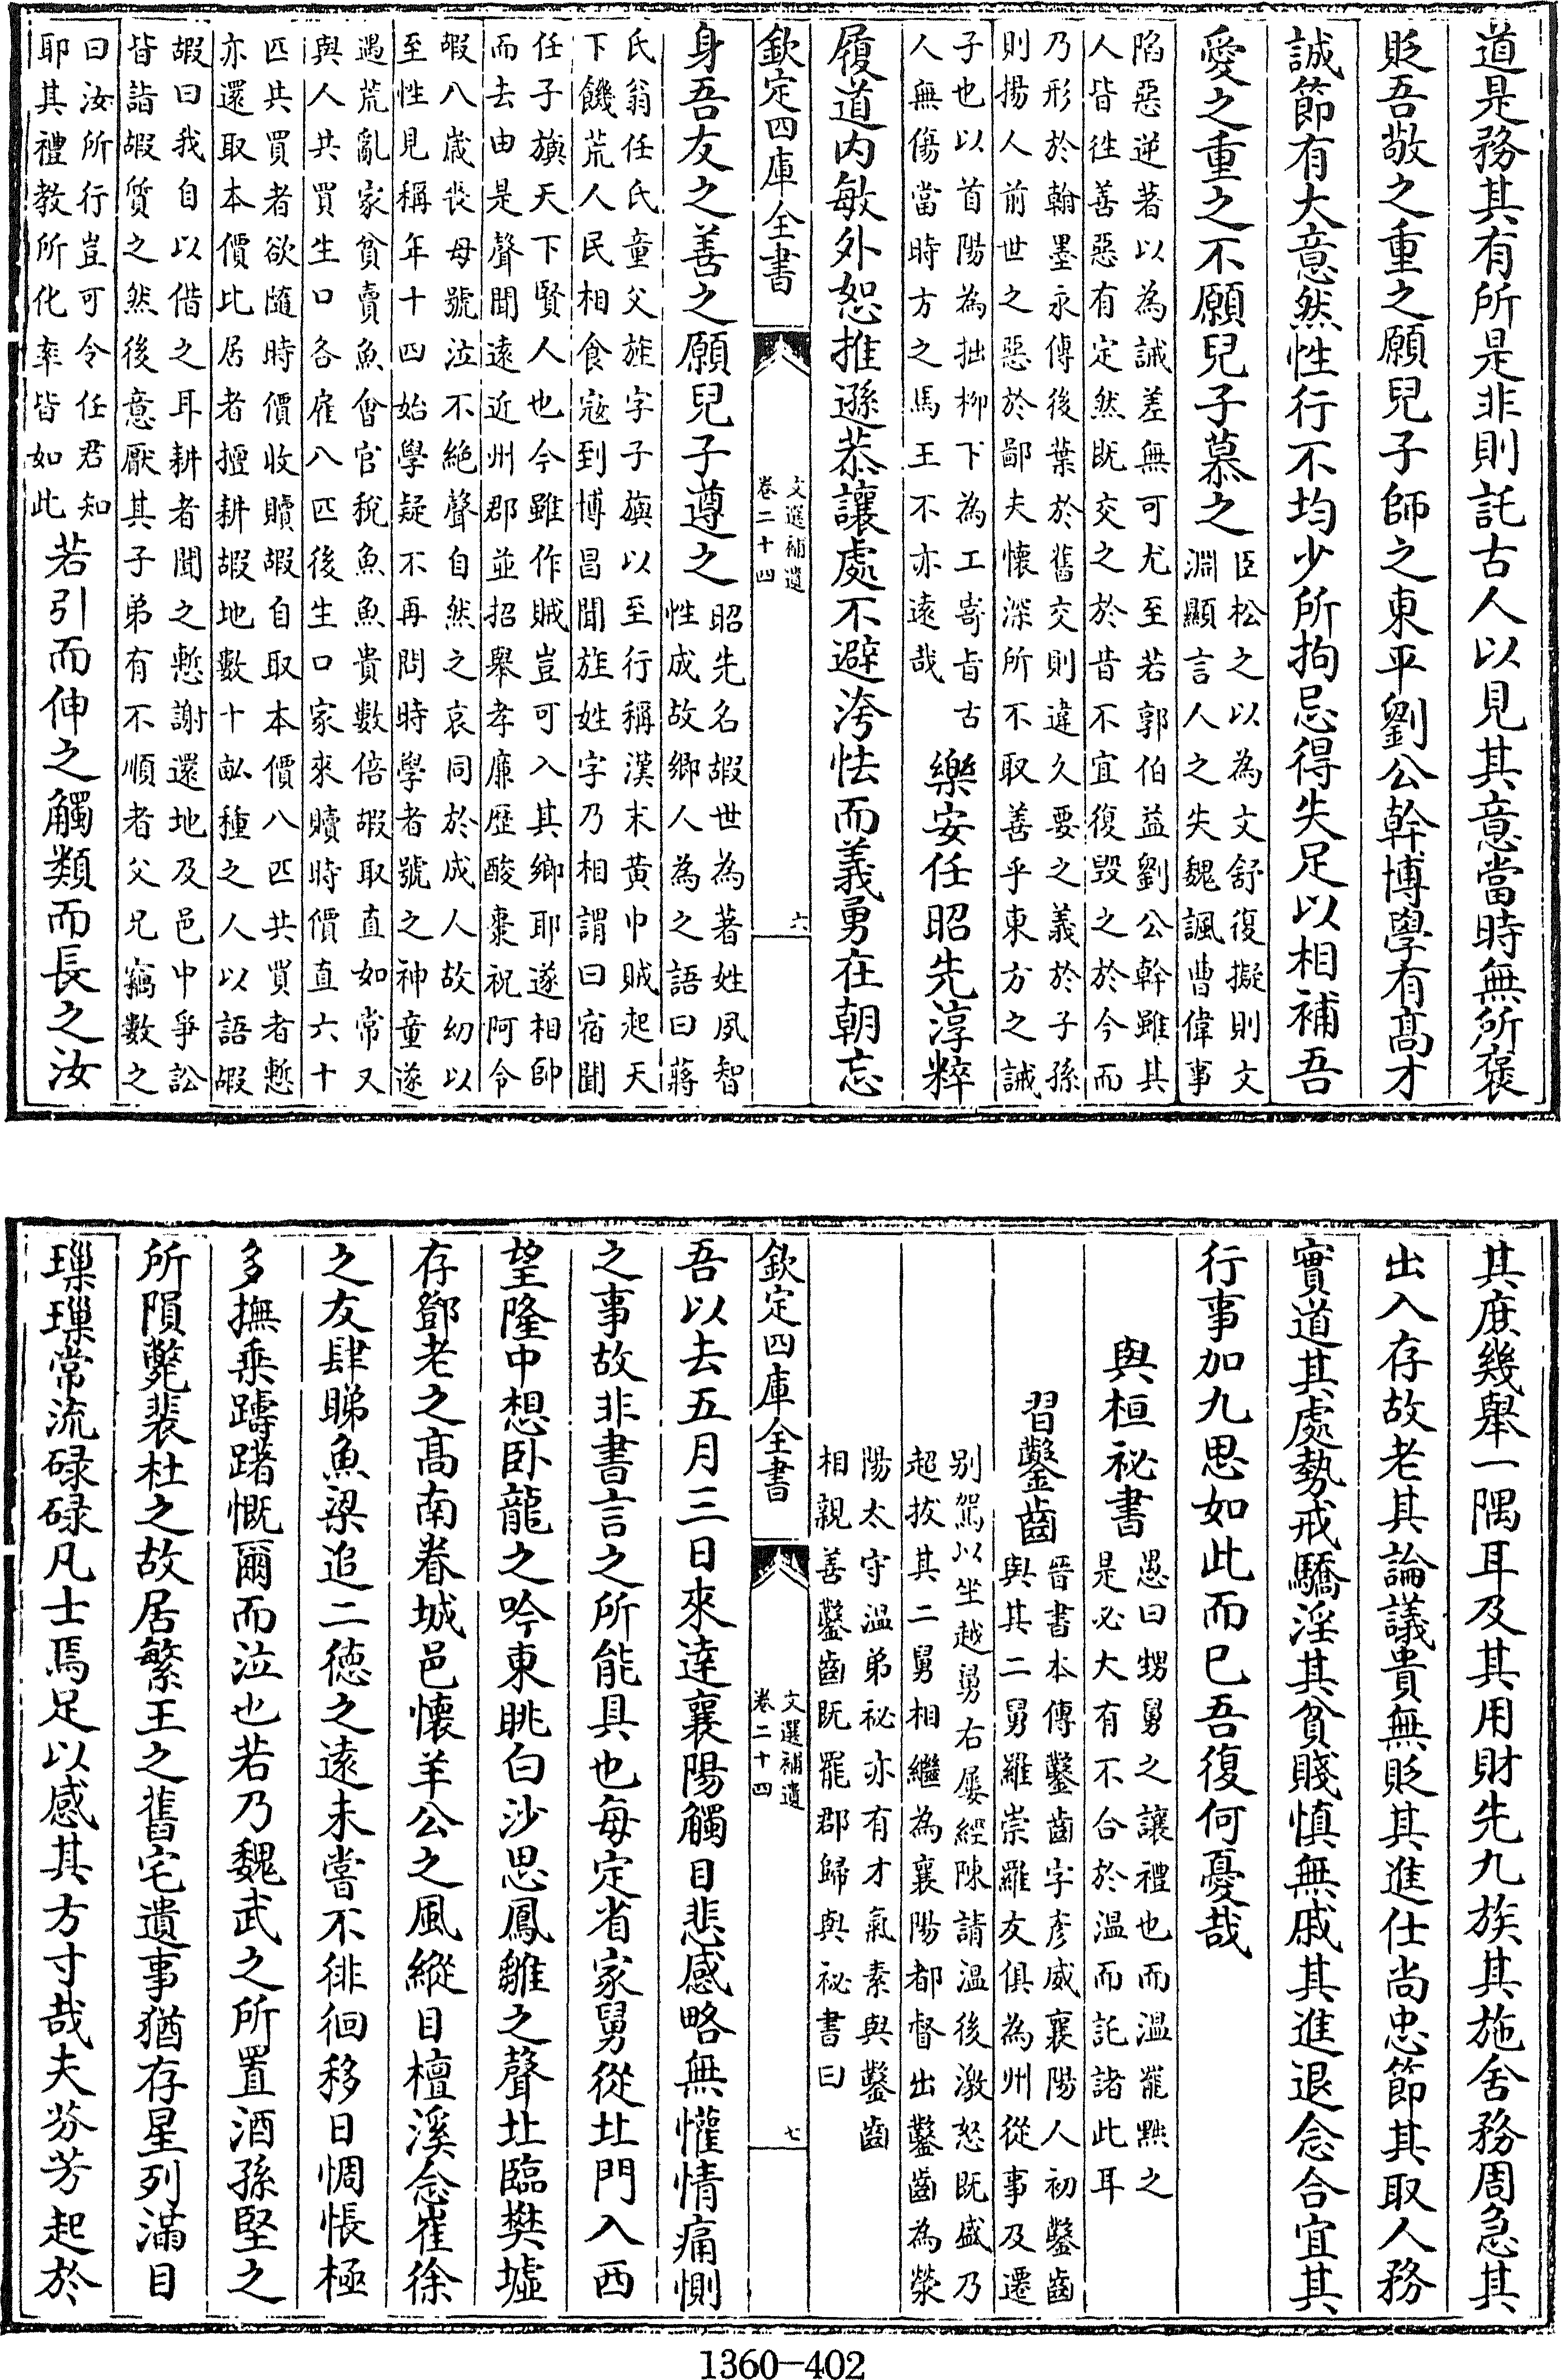 道是務其有所是非則託古人以見其意當時無所褒
貶吾敬之重之願兒子師之東平劉公幹博學有髙才
誠節有大意然性行不均少所拘忌得失足以相補吾
愛之重之不願兒子慕之
臣松之以為文舒復擬則文
淵顯言人之失魏諷曹偉事
陷惡逆著以為誡差無可尤至若郭伯益劉公幹雖其
人皆徃善惡有定然既交之於昔不宜復毀之於今而
乃形於翰墨永傳後葉於舊交則違久要之義於子孫
則揚人前世之惡於鄙夫懷深所不取善乎東方之誡
子也以首陽為拙柳下為工寄旨古
人無傷當時方之馬王不亦遠哉
樂安任昭先淳粹
履道内敏外恕推遜恭讓處不避洿怯而義勇在朝忘
欽定四庫全書
文選補遺
卷二十四
六
身吾友之善之願兒子遵之
昭先名嘏世為著姓夙智
性成故鄉人為之語曰蔣
氏翁任氏童父旐字子旟以至行稱漢末黄巾賊起天
下饑荒人民相食寇到博昌聞旐姓字乃相謂曰宿聞
任子旟天下賢人也今雖作賊豈可入其鄉耶遂相帥
而去由是聲聞遠近州郡並招舉孝廉歷酸棗祝阿令
嘏八歲喪母號泣不絶聲自然之哀同於成人故幼以
至性見稱年十四始學疑不再問時學者號之神童遂
遇荒亂家貧賣魚會官稅魚魚貴數倍嘏取直如常又
與人共買生口各雇八匹後生口家來贖時價直六十
匹共買者欲隨時價收贖嘏自取本價八匹共買者慙
亦還取本價比居者擅耕嘏地數十畝種之人以語嘏
嘏曰我自以借之耳耕者聞之慙謝還地及邑中爭訟
皆詣嘏質之然後意厭其子弟有不順者父兄竊數之
曰汝所行豈可令任君知
耶其禮教所化率皆如此
若引而伸之觸類而長之汝
其庶幾舉一隅耳及其用財先九族其施舍務周急其
出入存故老其論議貴無貶其進仕尚忠節其取人務
實道其處勢戒驕淫其貧賤慎無戚其進退念合宜其
行事加九思如此而已吾復何憂哉
與桓祕書
愚曰甥舅之讓禮也而溫罷黜之
是必大有不合於溫而託諸此耳
習鑿齒
晉書本傳鑿齒字彥威襄陽人初鑿齒
與其二舅羅崇羅友俱為州從事及遷
别駕以坐越舅右屢經陳請溫後激怒既盛乃
超拔其二舅相繼為襄陽都督出鑿齒為滎
陽太守溫弟祕亦有才氣素與鑿齒
相親善鑿齒既罷郡歸與祕書曰
欽定四庫全書
文選補遺
卷二十四
七
吾以去五月三日來達襄陽觸目悲感略無懽情痛惻
之事故非書言之所能具也每定省家舅從北門入西
望隆中想卧龍之吟東眺白沙思鳳雛之聲北臨樊墟
存鄧老之髙南眷城邑懷羊公之風縱目檀溪念崔徐
之友肆睇魚梁追二德之遠未嘗不徘徊移日惆悵極
多撫乘躊躇慨爾而泣也若乃魏武之所置酒孫堅之
所隕斃裴杜之故居繁王之舊宅遺事猶存星列滿目
璅璅常流碌碌凡士焉足以感其方寸哉夫芬芳起於
1360-402